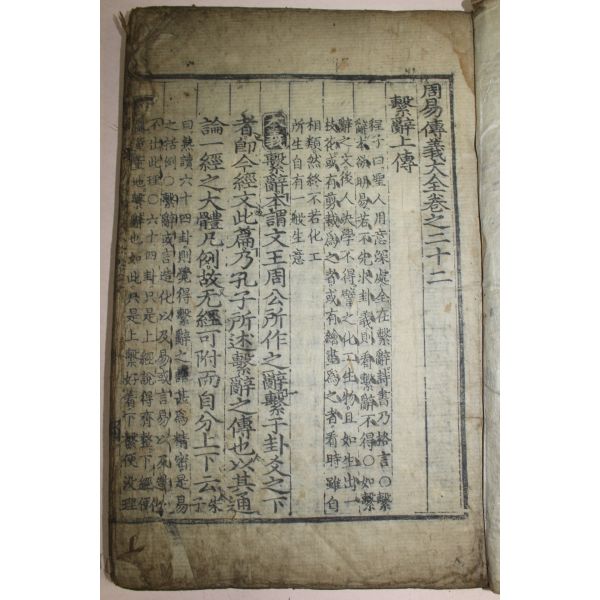 周易傳義大全卷之二十二
繫辭上傳
程子曰聖人用意深處全在繫辭詩書乃格言○繫
辭本欲明易若不先求卦義則看繫辭不得○如繫
辭之文後人決學不得譬之化工生物且如生出一
枝花或有剪裁爲之者或有繪畫爲之者看時雖自
相類然終不若化工
所生自有一般生意
本義繫辭本謂文王周公所作之辭繫于卦爻之下
者即今經文此篇乃孔子所述繫辭之傳也以其通
論一經之大體凡例故无經可附而自分上下云朱子
曰熟讀六十四卦則覺得繫辭之語甚爲精密是易
之括例○繫辭或言造化以及易或言易以及造化
不出此理○六十四卦只是上經說得齊整下經便
是上繫好看下繫便沒理